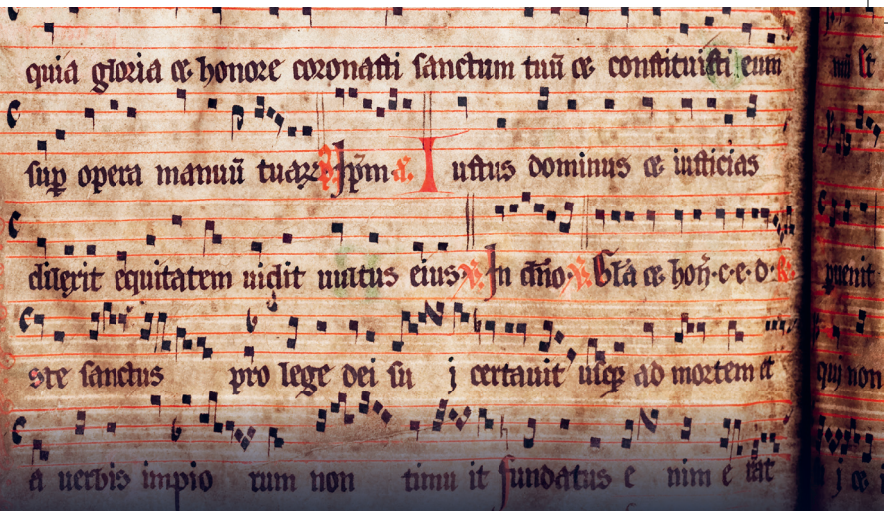 quia gloria ⁊ honore coronasti sanctum tuū ⁊ constituisti eum
suꝑ opera manuū tuaꝝ ℟. Ip̄m ℣. Iustus dominus ⁊ iusticias
dilexit equitatem uidit uultus eius ℟. In dn̄o ℣. Gl̄a ⁊ hon̄·c·e·d· ℟.
ste sanctus pro lege dei su i certauit usqꝫ ad mortem et
a uerbis impio rum non timu it fundatus e nim e rat